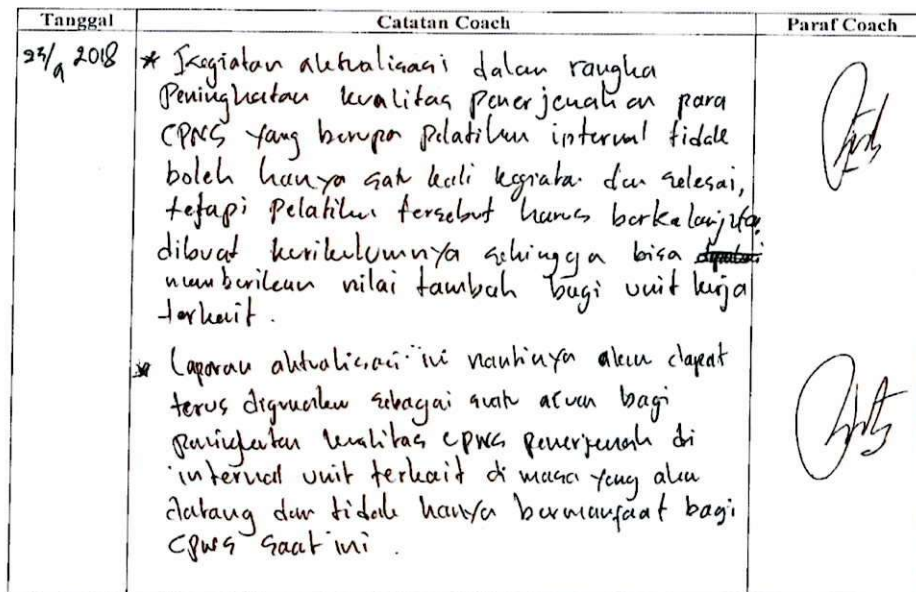 Tanggal Catatan Coach Paraf Coach
25/9 2018 * Kegiatan aktualisasi dalam rangka
Peningkatan kualitas penerjemahan para
CPNS yang berupa pelatihan internal tidak
boleh hanya satu kali kegiatan dan selesai,
tetapi Pelatihan tersebut harus berkelanjutan
dibuat kurikulumnya sehingga bisa
memberikan nilai tambah bagi unit kerja
terkait.
* Laporan aktualisasi ini nantinya akan dapat
terus digunakan sebagai suatu acuan bagi
peningkatan kualitas CPNS penerjemah di
internal unit terkait di masa yang akan
datang dan tidak hanya bermanfaat bagi
CPNS saat ini.